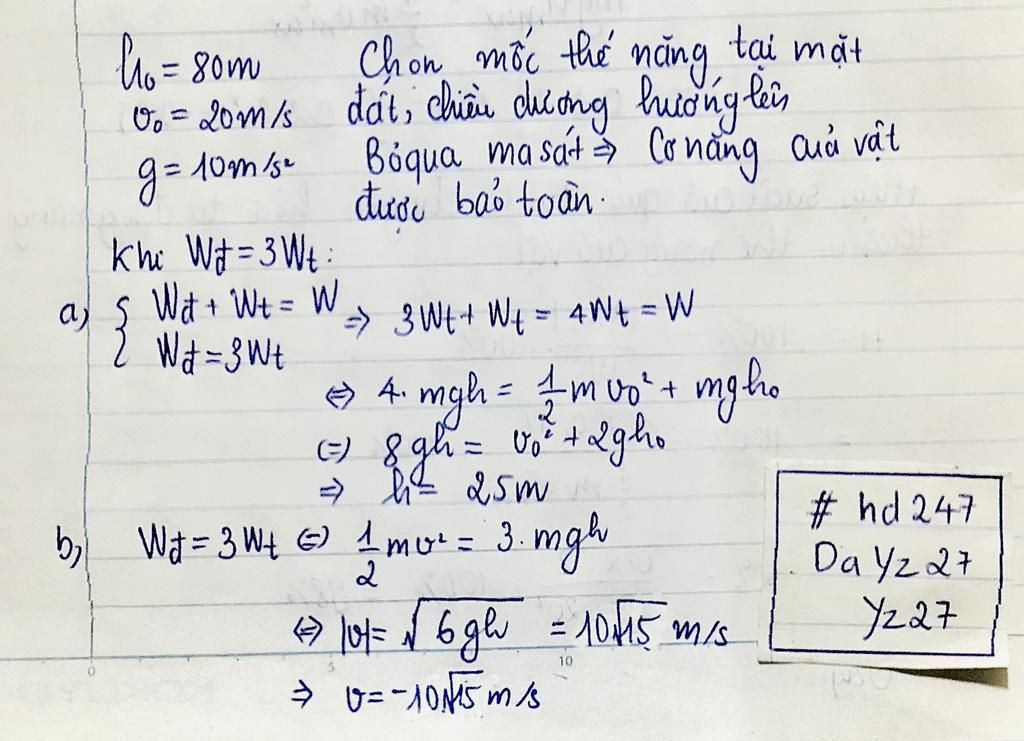 h₀ = 80m
v₀ = 20m/s
g = 10m/s²
Chọn mốc thế năng tại mặt
đất, chiều dương hướng lên
Bỏ qua ma sát ⇒ Cơ năng của vật
được bảo toàn.
Khi Wđ = 3Wt:
a, { Wđ + Wt = W ⇒ 3Wt + Wt = 4Wt = W
Wđ = 3Wt
⇔ 4. mgh = 1/2 m v₀² + mgh₀
⇔ 8gh = v₀² + 2gh₀
⇒ h = 25m
b, Wđ = 3Wt ⇔ 1/2 mv² = 3. mgh
⇔ |v| = √6gh = 10√15 m/s
⇒ v = -10√15 m/s
# hd 247
Da Yz 27
Yz 27
0 5 10